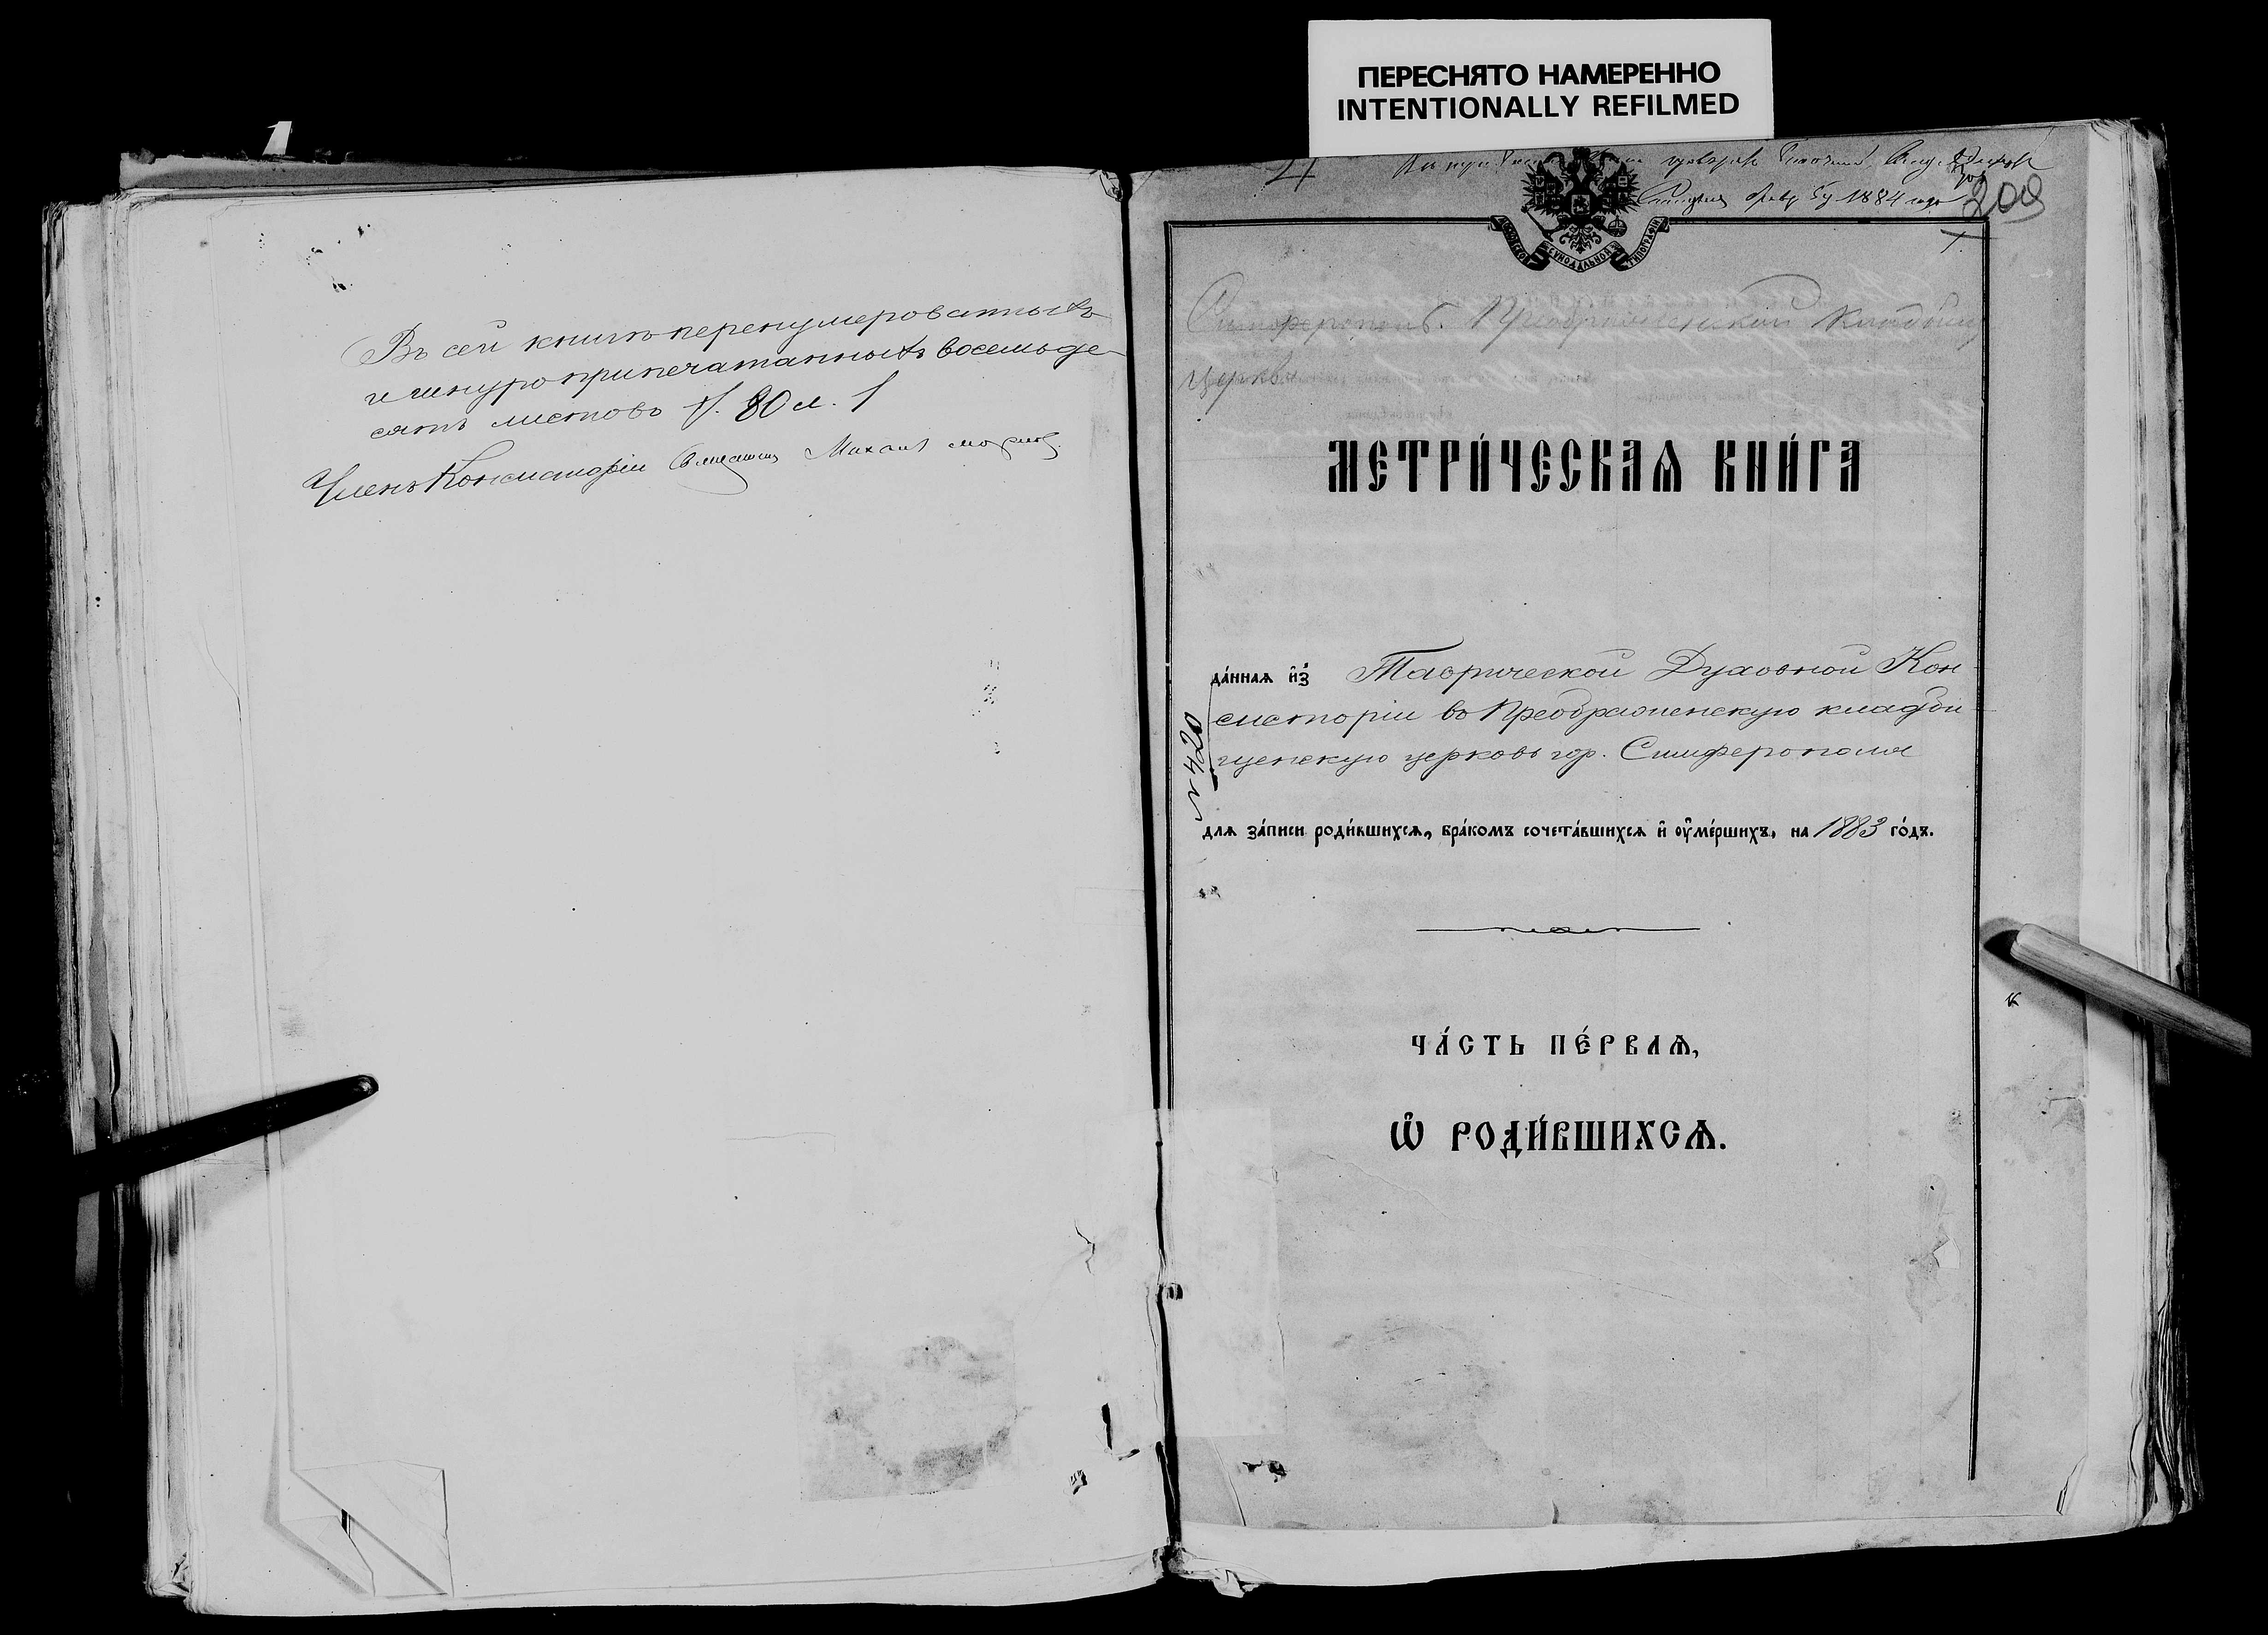 ПЕРЕСНЯТО НАМЕРЕННО
INTENTIONALLY REFILMED
1
Въ сей книгѣ перенумерованныхъ
и шнуроприпечатанныхъ восемьде-
сятъ листовъ 80 л.
Членъ Консисторіи Священникъ Михаилъ
1884 года
209
МОСКОВСКОЙ СѴНОДАЛЬНОЙ ТИПОГРАФІИ
Симферополь. Преображенской кладбищ
церкви
МЕТРИ́ЧЕСКАѦ КНИ́ГА
да́ннаѧ и҆з̾ Таврической Духовной Кон-
систоріи въ Преображенскую кладби-
щенскую церковь гор. Симферополя
длѧ за́писи роди́вшихсѧ, бра́комъ сочета́вшихсѧ и҆ ᲂу҆ме́ршихъ, на 1883 го́дъ.
ЧА́СТЬ ПЕ́РВАѦ,
Ѡ҆ РОДИ́ВШИХСѦ.